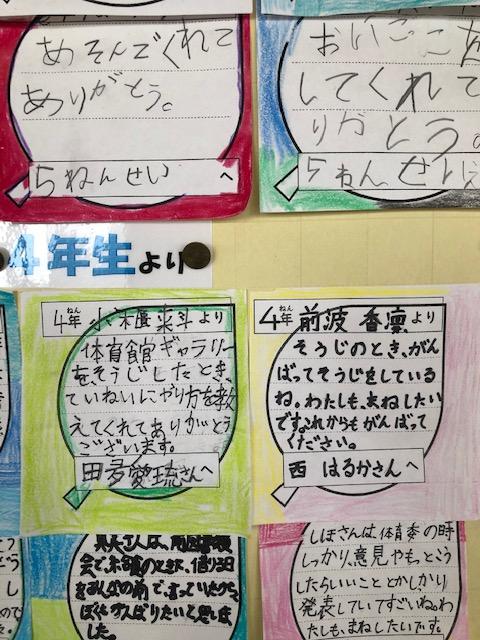 あそんでくれて
ありがとう。
5ねんせい へ
おにごこを
してくれて
りがとう。
5ねんせい
4年生より
4年 より
体育館ギャラリー
を、そうじしたとき、
ていねいにやり方を教
えてくれてありがとう
ございます。
田多愛琉さんへ
4年 前波 香凛より
そうじのとき、がん
ばってそうじをしている
ね。わたしも、まねしたい
です。これからもがんばって
ください。
西 はるかさんへ
をみんなの前で、言っていたから、
ぼくもがんばりたいと思いまし
した。
しほさんは、体育委の時
しっかり、意見やもっとこう
したらいいこととかしかり
発表していてすごいね。わ
たしも、まねしたいです。